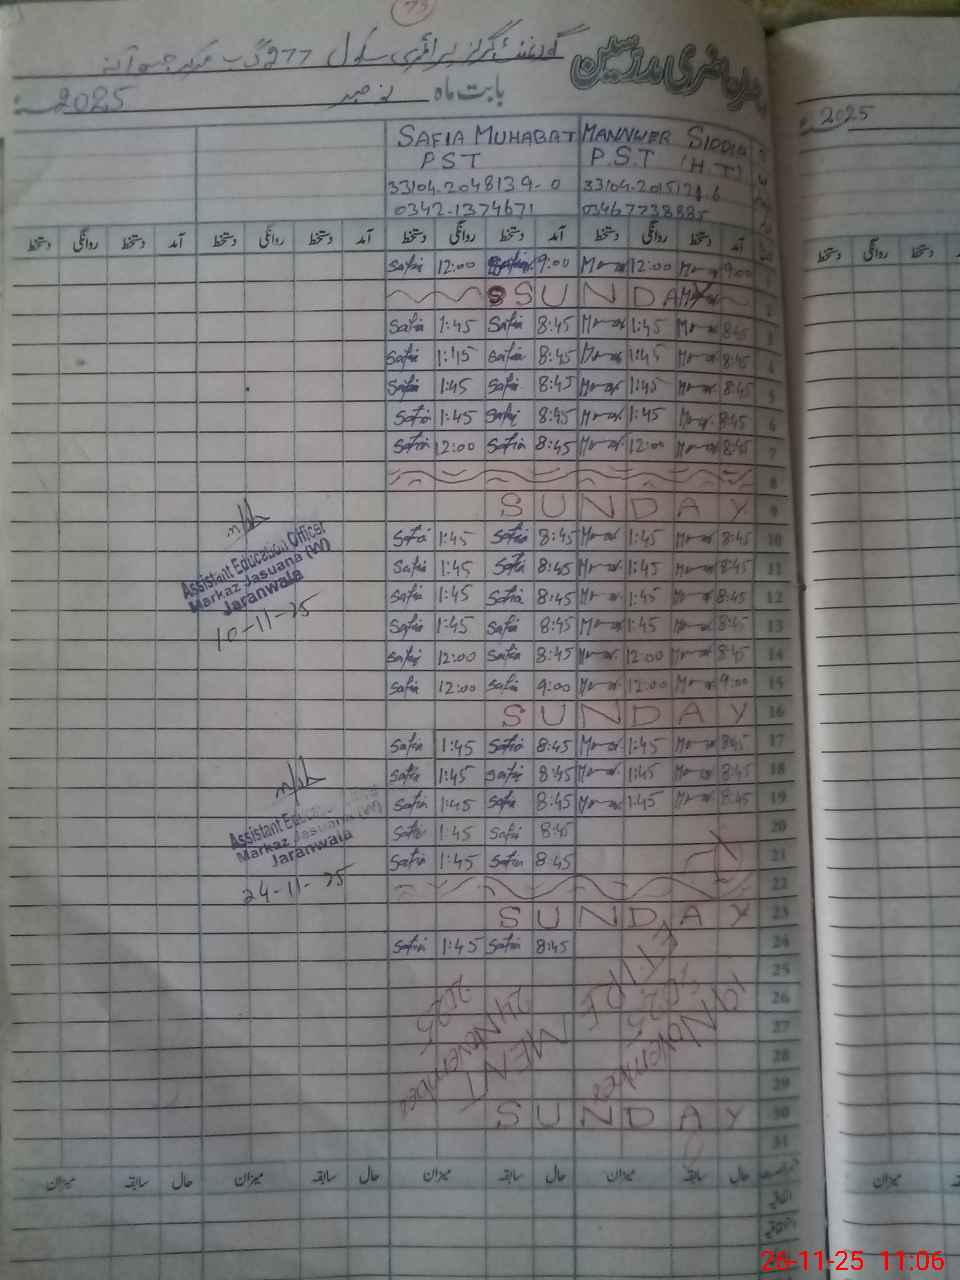 73
گورنمنٹ گرلز پرائمری سکول 277 گ ب مرکز جسوآنہ
حاضری مدرسین
بابت ماہ نومبر 2025
2025
SAFIA MUHABAT MANNWER SIDDIQ
PST P.S.T (H.T)
33104-2048139-0
0342-1374671 03467738885
آمد دستخط روانگی دستخط آمد دستخط روانگی دستخط آمد دستخط روانگی دستخط آمد دستخط روانگی دستخط
دستخط روانگی دستخط
Safia 12:00 Safia 9:00 12:00 9:00 1
SUNDAY 2
Safia 1:45 Safia 8:45 1:45 8:45 3
Safia 1:45 Safia 8:45 1:45 8:45 4
Safia 1:45 Safia 8:45 1:45 8:45 5
Safia 1:45 Safia 8:45 1:45 8:45 6
Safia 12:00 Safia 8:45 12:00 8:45 7
8
SUNDAY 9
Safia 1:45 Safia 8:45 1:45 8:45 10
Safia 1:45 Safia 8:45 1:45 8:45 11
Safia 1:45 Safia 8:45 1:45 8:45 12
Safia 1:45 Safia 8:45 1:45 8:45 13
Safia 12:00 Safia 8:45 12:00 8:45 14
Safia 12:00 Safia 9:00 12:00 9:00 15
SUNDAY 16
Safia 1:45 Safia 8:45 1:45 8:45 17
Safia 1:45 Safia 8:45 1:45 8:45 18
Safia 1:45 Safia 8:45 1:45 8:45 19
Safia 1:45 Safia 8:45 20
Safia 1:45 Safia 8:45 21
22
SUNDAY 23
Safia 1:45 Safia 8:45 24
25
26
27
28
29
SUNDAY 30
31
Assistant Education Officer
Markaz Jasuana (W)
Jaranwala
10-11-25
Assistant Education
Markaz Jasuana (W)
Jaranwala
24-11-25
RETIRE
MENT
24 November
2025
19 November
2025
حال سابقہ میزان حال سابقہ میزان حال سابقہ میزان حال سابقہ میزان
اتفاقی
میزان
26-11-25 11:06